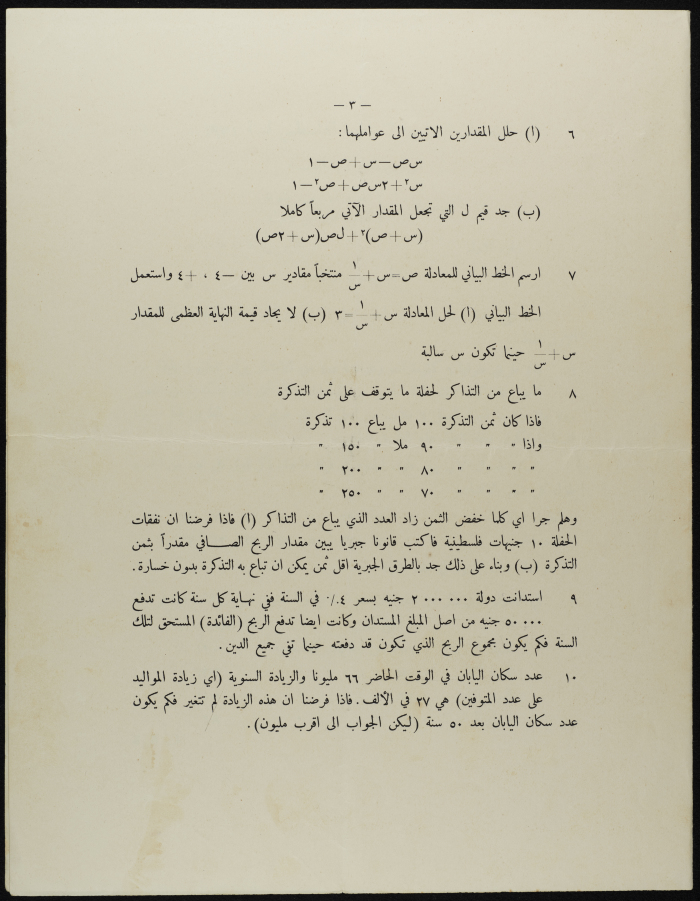 — ٣ —
٦ (ا) حلل المقدارين الاتيين الى عواملهما:
س ص — س + ص — ١
س٢ + ٢ س ص + ص٢ — ١
(ب) جد قيم ل التي تجعل المقدار الآتي مربعاً كاملا
(س + ص)٢ + ل ص (س + ٢ ص)
٧ ارسم الخط البياني للمعادلة ص = س + ١/س منتخباً مقادير س بين — ٤ ، + ٤ واستعمل
الخط البياني (ا) لحل المعادلة س + ١/س = ٣ (ب) لا يجاد قيمة النهاية العظمى للمقدار
س + ١/س حينما تكون س سالبة
٨ ما يباع من التذاكر لحفلة ما يتوقف على ثمن التذكرة
فاذا كان ثمن التذكرة ١٠٠ مل يباع ١٠٠ تذكرة
واذا " " " ٩٠ ملا " ١٥٠ "
" " " " ٨٠ " " ٢٠٠ "
" " " " ٧٠ " " ٢٥٠ "
وهلم جرا اي كلما خفض الثمن زاد العدد الذي يباع من التذاكر (ا) فاذا فرضنا ان نفقات
الحفلة ١٠ جنيهات فلسطينية فاكتب قانونا جبريا يبين مقدار الربح الصافي مقدراً بثمن
التذكرة (ب) وبناء على ذلك جد بالطرق الجبرية اقل ثمن يمكن ان تباع به التذكرة بدون خسارة.
٩ استدانت دولة ٢٠٠٠٠٠٠ جنيه بسعر ٤٪ في السنة ففي نهاية كل سنة كانت تدفع
٥٠٠٠٠ جنيه من اصل المبلغ المستدان وكانت ايضا تدفع الربح (الفائدة) المستحق لتلك
السنة فكم يكون مجموع الربح الذي تكون قد دفعته حينما تفي جميع الدين.
١٠ عدد سكان اليابان في الوقت الحاضر ٦٦ مليونا والزيادة السنوية (اي زيادة المواليد
على عدد المتوفين) هي ٢٧ في الألف. فاذا فرضنا ان هذه الزيادة لم تتغير فكم يكون
عدد سكان اليابان بعد ٥٠ سنة (ليكن الجواب الى اقرب مليون).